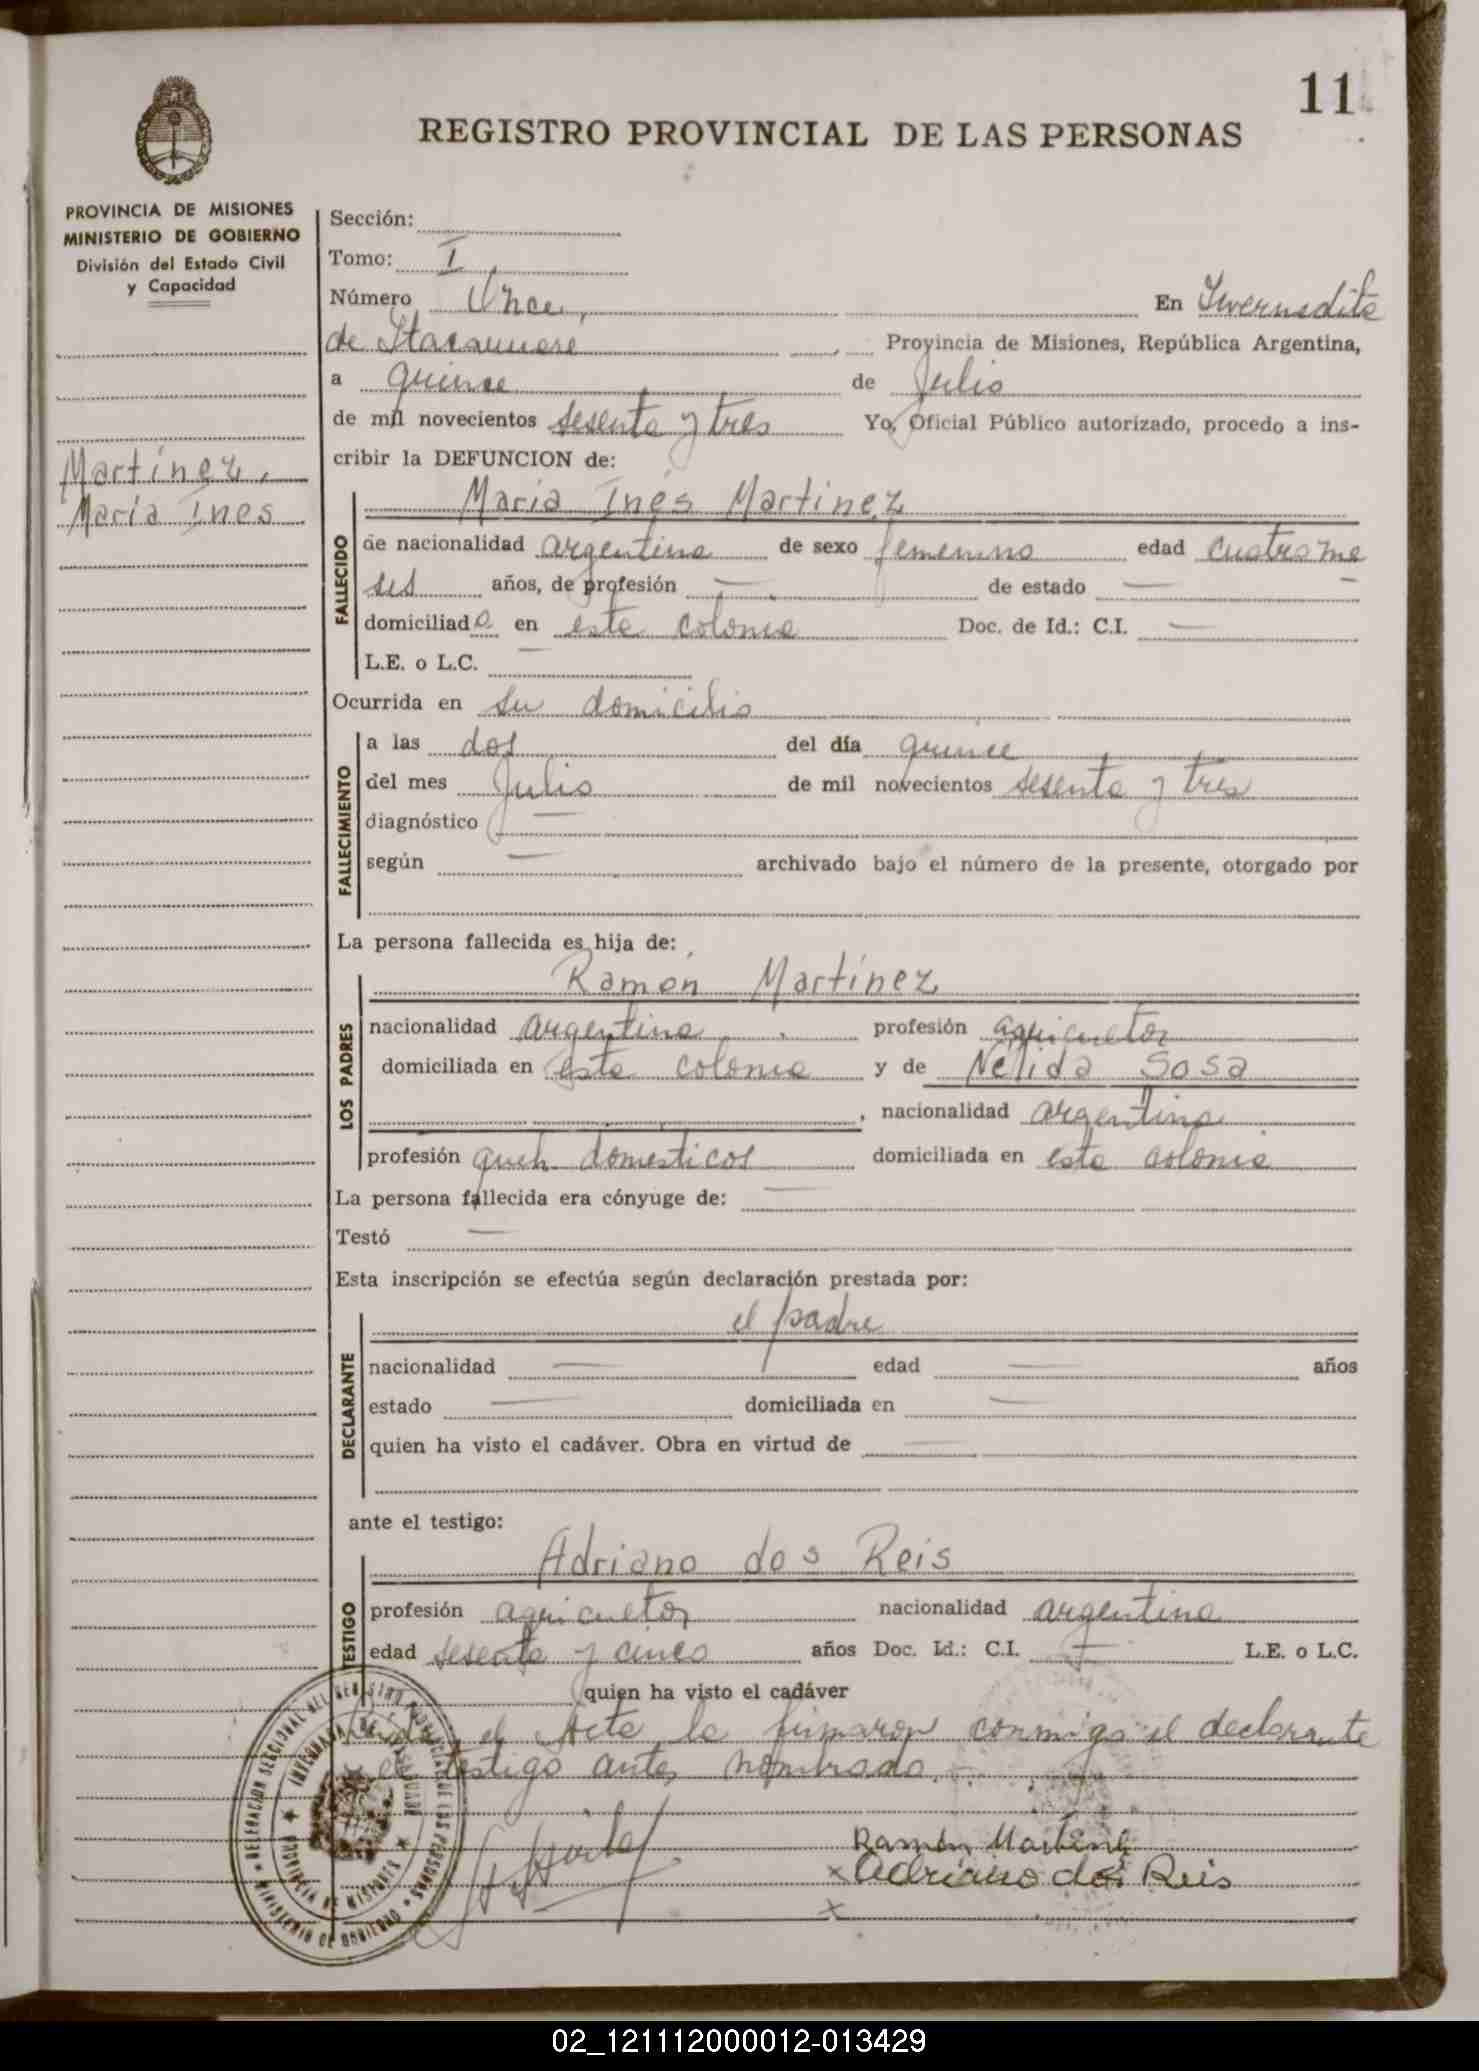 11
REGISTRO PROVINCIAL DE LAS PERSONAS
PROVINCIA DE MISIONES
MINISTERIO DE GOBIERNO
División del Estado Civil
y Capacidad
Martínez,
María Ines
Sección:
Tomo: I
Número Once, En Invernadita
de Itacaruare, Provincia de Misiones, República Argentina,
a quince de Julio
de mil novecientos sesenta y tres Yo, Oficial Público autorizado, procedo a ins-
cribir la DEFUNCION de:
María Inés Martínez
FALLECIDO
de nacionalidad argentina de sexo femenino edad cuatro me
ses años, de profesión — de estado —
domiciliada en esta colonia Doc. de Id.: C.I. —
L.E. o L.C. —
Ocurrida en su domicilio
FALLECIMIENTO
a las dos del día quince
del mes Julio de mil novecientos sesenta y tres
diagnóstico —
según — archivado bajo el número de la presente, otorgado por
La persona fallecida es hija de:
LOS PADRES
Ramón Martínez
nacionalidad argentina profesión agricultor
domiciliada en esta colonia y de Nélida Sosa
, nacionalidad argentina
profesión queh. domesticos domiciliada en esta colonia
La persona fallecida era cónyuge de: —
Testó —
Esta inscripción se efectúa según declaración prestada por:
DECLARANTE
el padre
nacionalidad — edad — años
estado — domiciliada en —
quien ha visto el cadáver. Obra en virtud de —
ante el testigo:
TESTIGO
Adriano dos Reis
profesión agricultor nacionalidad argentina
edad sesenta y cinco años Doc. Id.: C.I. — L.E. o L.C.
quien ha visto el cadáver
Leída el Acta la firmaron conmigo el declarante
y el testigo antes nombrado.-
Ramón Martine
x Adriano dos Reis
x
DELEGACION SECCIONAL DEL REGISTRO PROVINCIAL DE LAS PERSONAS
MINISTERIO DE GOBIERNO
PROVINCIA DE MISIONES
02_121112000012-013429